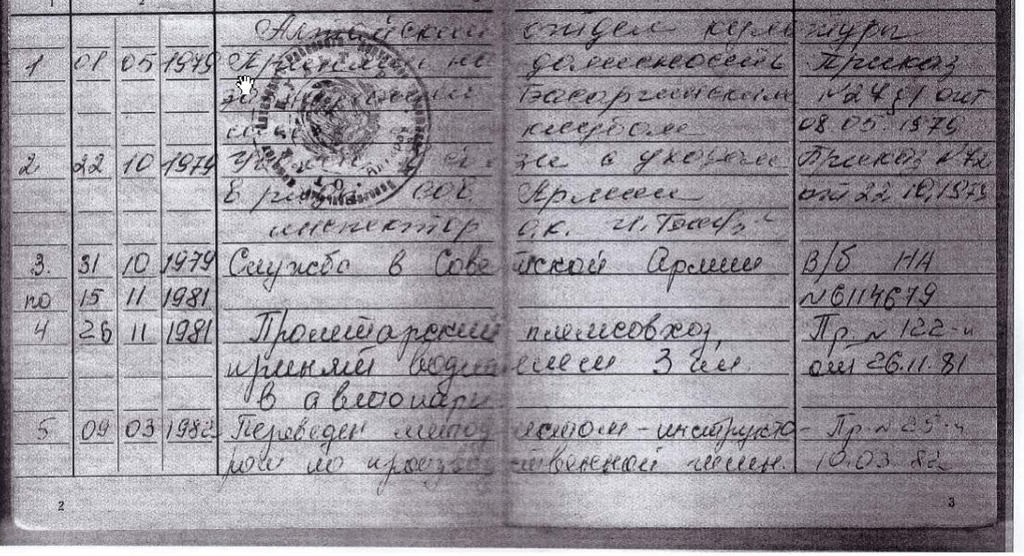 Алтайский отдел культуры
1 08 05 1979 Принят на должность Приказ
Басаргинским №24 §1 от
клубом 08.05.1979
2. 22 10 1979 с уходом Приказ №72
в ряды Сов. Армии от 22.10.1979
инспектор о.к.
3. 31 10 1979 Служба в Советской Армии В/б НА
по 15 11 1981 №6114679
4 26 11 1981 Пролетарский племсовхоз, Пр. № 122-к
принят водителем 3 кл. от 26.11.81
в автопарк
5 09 03 1982 Переведен методистом-инструкто- Пр. № 25-к
ром по производственной гимн. 10.03.82
2
3